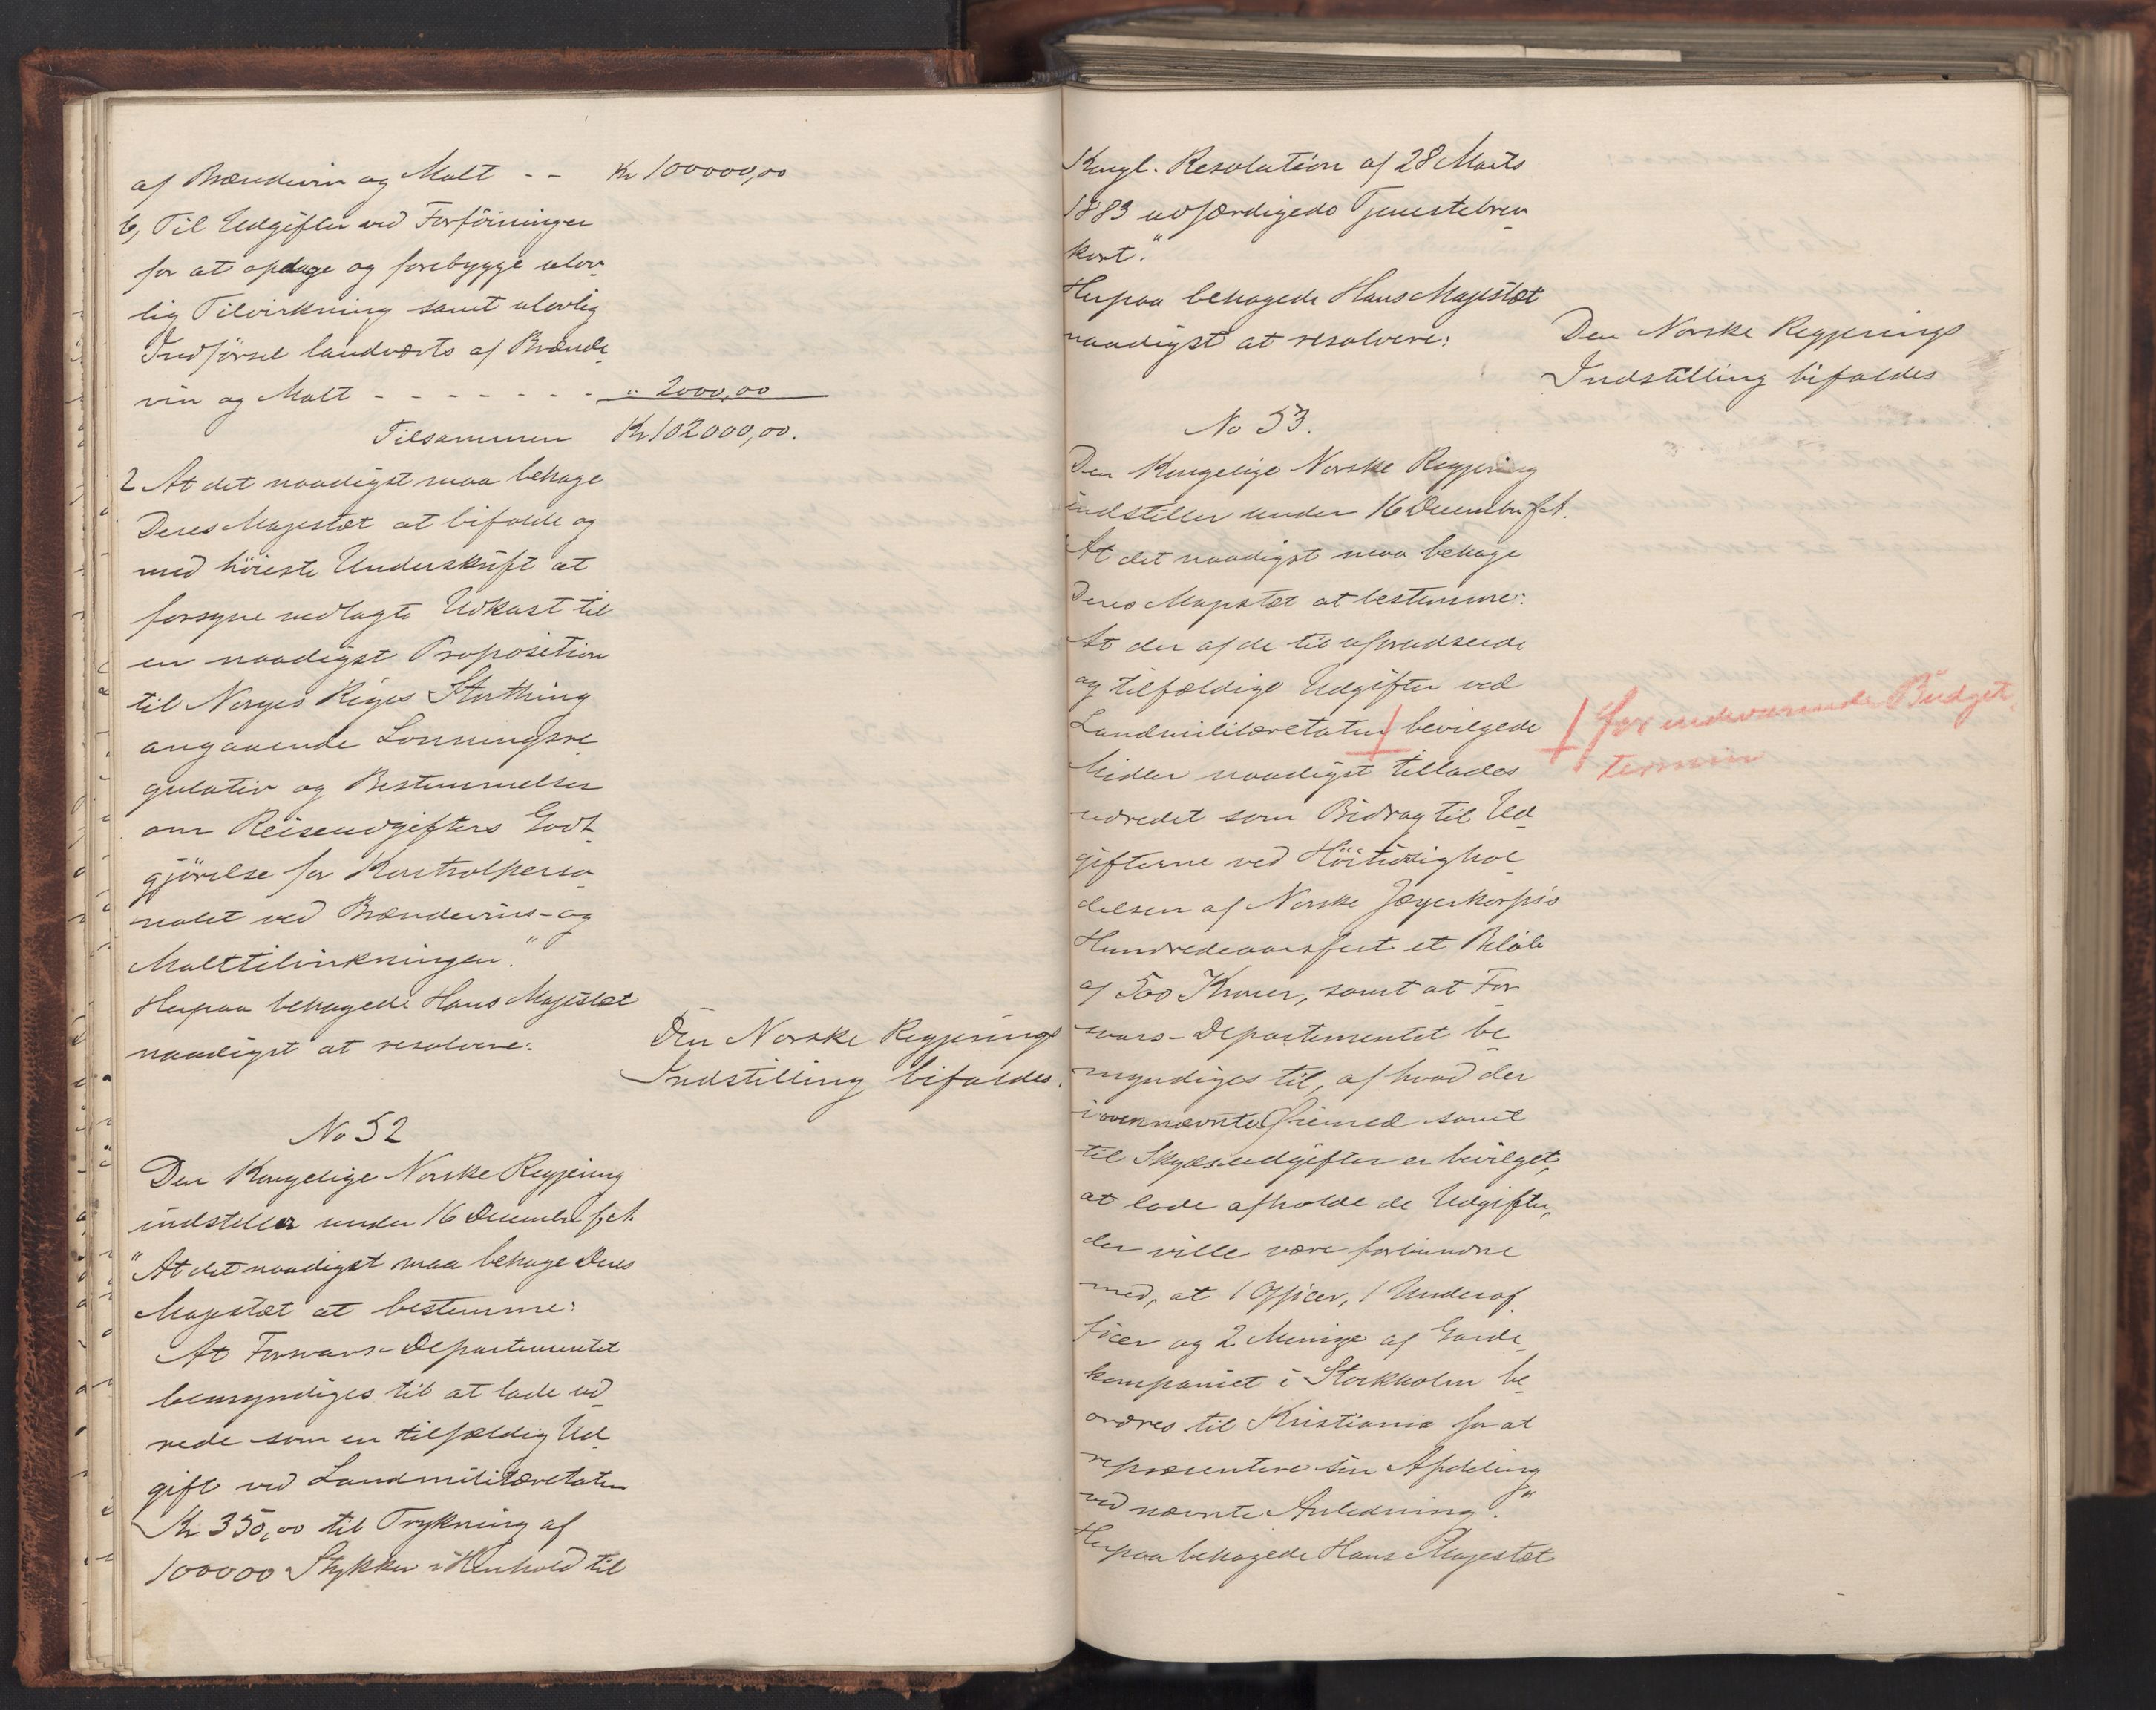 af Brændevin og Malt - - Kr 100000,00
b, Til Udgifter ved Forföininger
for at opdage og forebygge ulov-
lig Tilvirkning samt ulovlig
Indförsel landværts af Brænde-
vin og Malt - - - - - - - " 2000,00
Tilsammen Kr 102000,00.
2 At det naadigst maa behage
Deres Majestæt at bifalde og
med höieste Underskrift at
forsyne vedlagte Udkast til
en naadigst Proposition
til Norges Riges Storthing
angaaende Lönningsre-
gulativ og Bestemmelser
om Reiseudgifters Godt-
gjörelse for Kontrolperso-
nalet ved Brændevins- og
Malttilvirkningen."
Herpaa behagede Hans Majestæt
naadigst at resolvere:
Den Norske Regjerings
Indstilling bifaldes.
No 52
Den Kongelige Norske Regjering
indstiller under 16 December f. A.
"At det naadigst maa behage Deres
Majestæt at bestemme:
At Forsvars-Departementet
bemyndiges til at lade ud-
rede som en tilfældig Ud-
gift ved Landmilitæretaten
Kr 350,00 til Trykning af
100000 Stykker i Henhold til
Kongl. Resolution af 28 Marts
1883 udfærdigede Tjenestebrev-
kort."
Herpaa behagede Hans Majestæt
naadigst at resolvere:
Den Norske Regjerings
Indstilling bifaldes
No 53.
Den Kongelige Norske Regjering
indstiller under 16 December f. A.
"At det naadigst maa behage
Deres Majestæt at bestemme:
At der af de til uforudseede
og tilfældige Udgifter ved
Landmilitæretaten bevilgede
Midler naadigst tillades
udredet som Bidrag til Ud-
gifterne ved Höitidsighol-
delsen af Norske Jægerkorps's
Hundredeaarsfest et Belöb
af 500 Kroner, samt at For-
svars-Departementet be-
myndiges til, af hvad der
i ovennævnte Öiemed samt
til Skydsudgifter er bevilget,
at lade afholde de Udgifter,
der ville være forbundne
med, at 1 Officer, 1 Underof-
ficer og 2 Menige af Garde-
kompaniet i Stockholm be-
ordres til Kristiania for at
repræsentere sin Afdeling
ved nævnte Anledning."
Herpaa behagede Hans Majestæt
for indeværende Budget-
termin